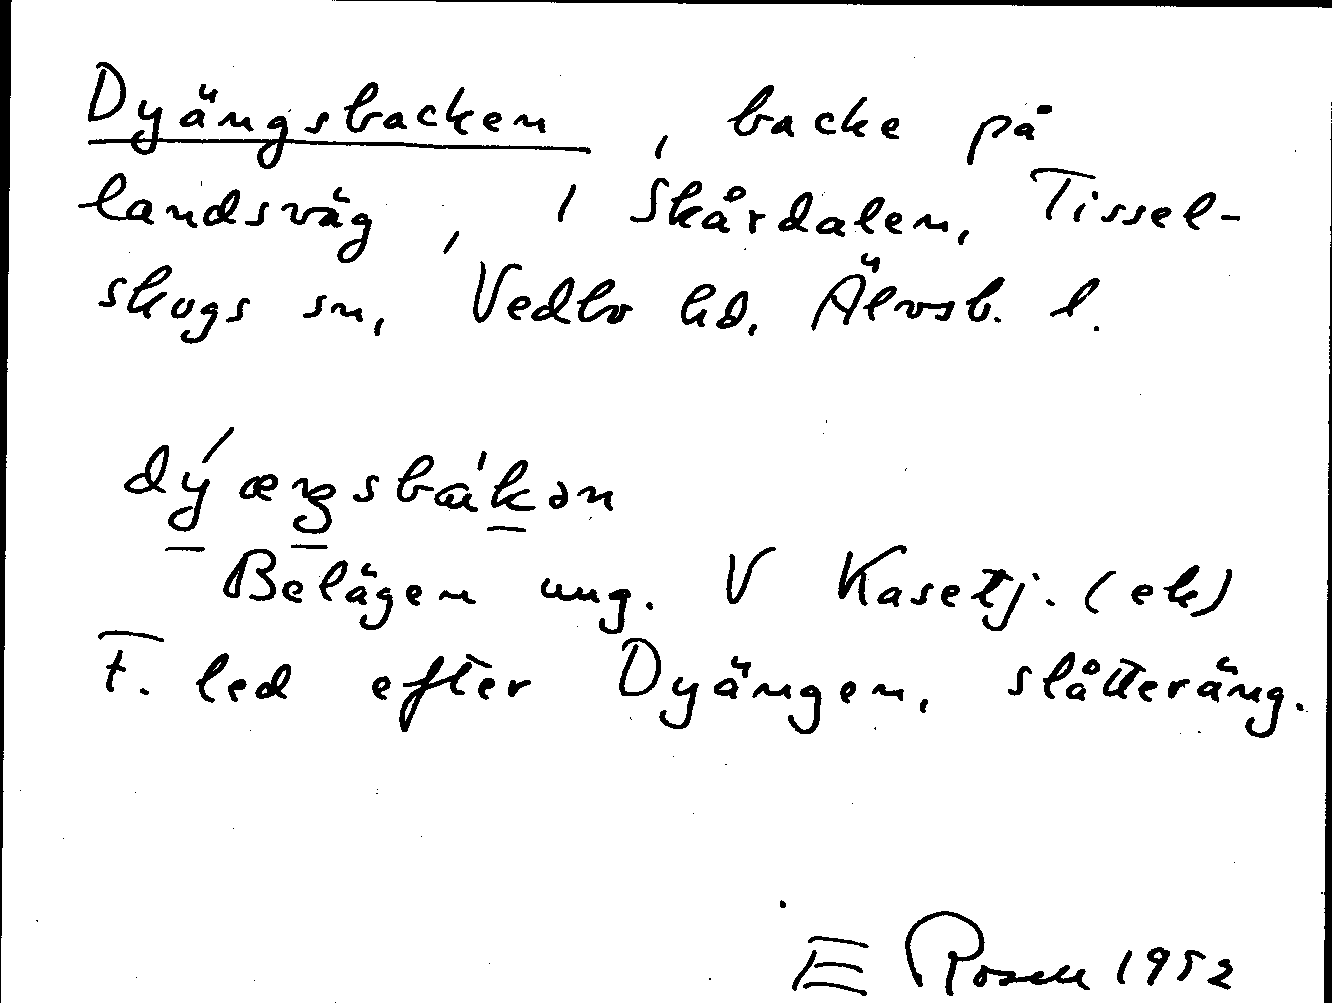 Dyängsbacken, backe på
landsväg, i Skårdalen, Tissel-
skogs sn, Vedbo hd. Älvsb. l.
dý æŋsbák̠ən
Belägen ung. V Kasetj. (ek)
F. led efter Dyängen, slåtteräng.
E Rosell 1952